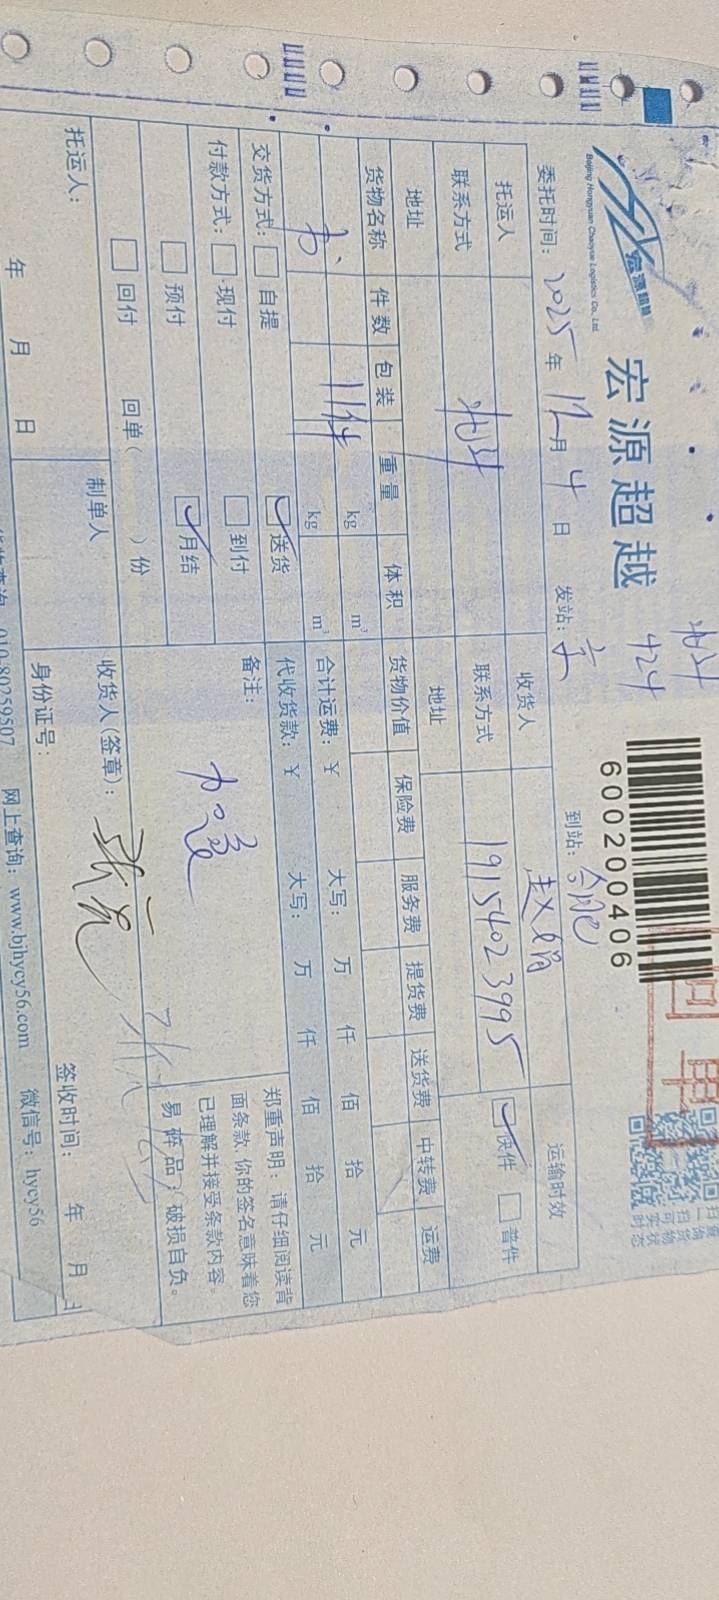 宏源超越
宏源超越
Beijing Hongyuan Chaoyue Logistics Co., Ltd.
424
600200406
回单
委托时间: 2025年 12月 4日 发站: 京 到站: 合肥
托运人 收货人 赵娟 运输时效
联系方式 联系方式 19154023995 快件 普件
地址 地址
货物名称 件数 包装 重量 体积 货物价值 保险费 服务费 提货费 送货费 中转费 运费
书 11件 kg m³
kg m³
合计运费: ¥ 大写: 万 仟 佰 拾 元
交货方式: 自提 送货
代收货款: ¥ 大写: 万 仟 佰 拾 元
付款方式: 现付 到付
预付 月结
回付 回单( )份
备注:
加急
郑重声明: 请仔细阅读背
面条款,你的签名意味着您
已理解并接受条款内容。
易碎品,破损自负。
托运人:
年 月 日
制单人
收货人(签章):
身份证号:
签收时间: 年 月 日
010-80259507 网上查询: www.bjhycy56.com 微信号: hycy56